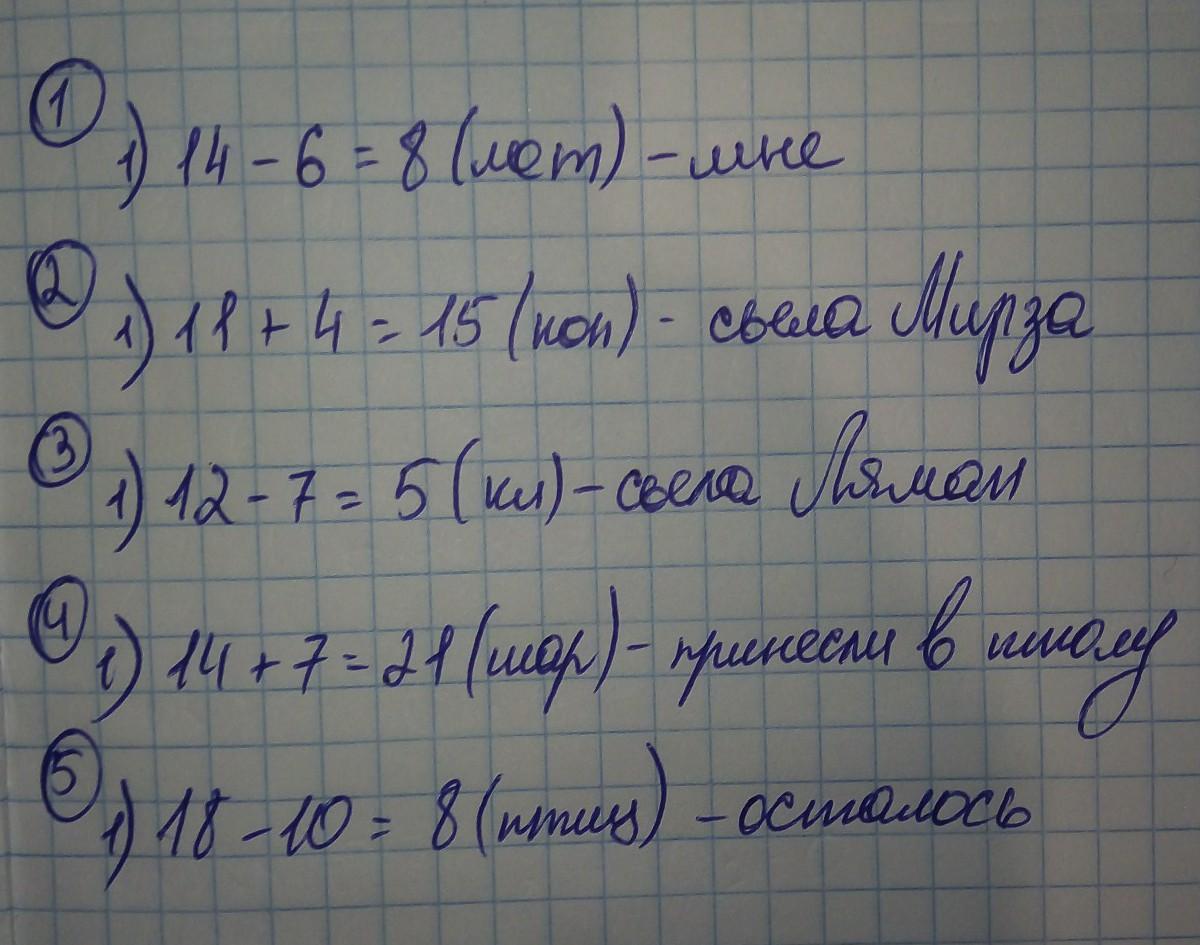 1
1) 14 - 6 = 8 (лет) - мне
2
1) 11 + 4 = 15 (кон) - сьела Мирза
3
1) 12 - 7 = 5 (кл) - сьела Ляман
4
1) 14 + 7 = 21 (шар) - принесли в школу
5
1) 18 - 10 = 8 (птиц) - осталось